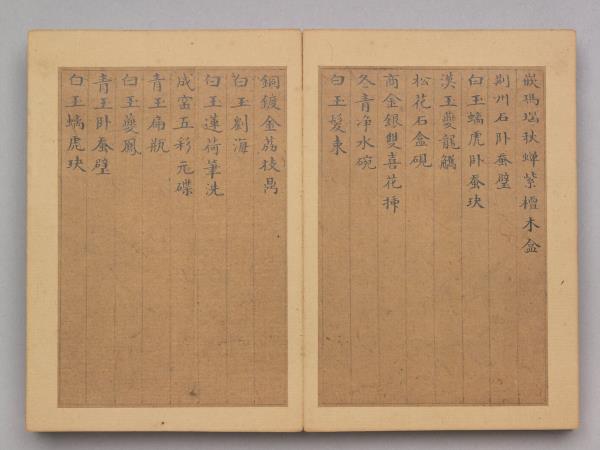 嵌瑪瑙秋蟬紫檀木盒
荆川石卧蚕璧
白玉螭虎卧蚕玦
漢玉夔龍觹
松花石盒硯
商金銀雙喜花揷
冬青净水碗
白玉髮束
銅鍍金荔枝
白玉劉海
白玉蓮荷筆洗
成窑五彩元碟
青玉扁瓶
白玉夔鳳
青玉卧蚕璧
白玉螭虎玦